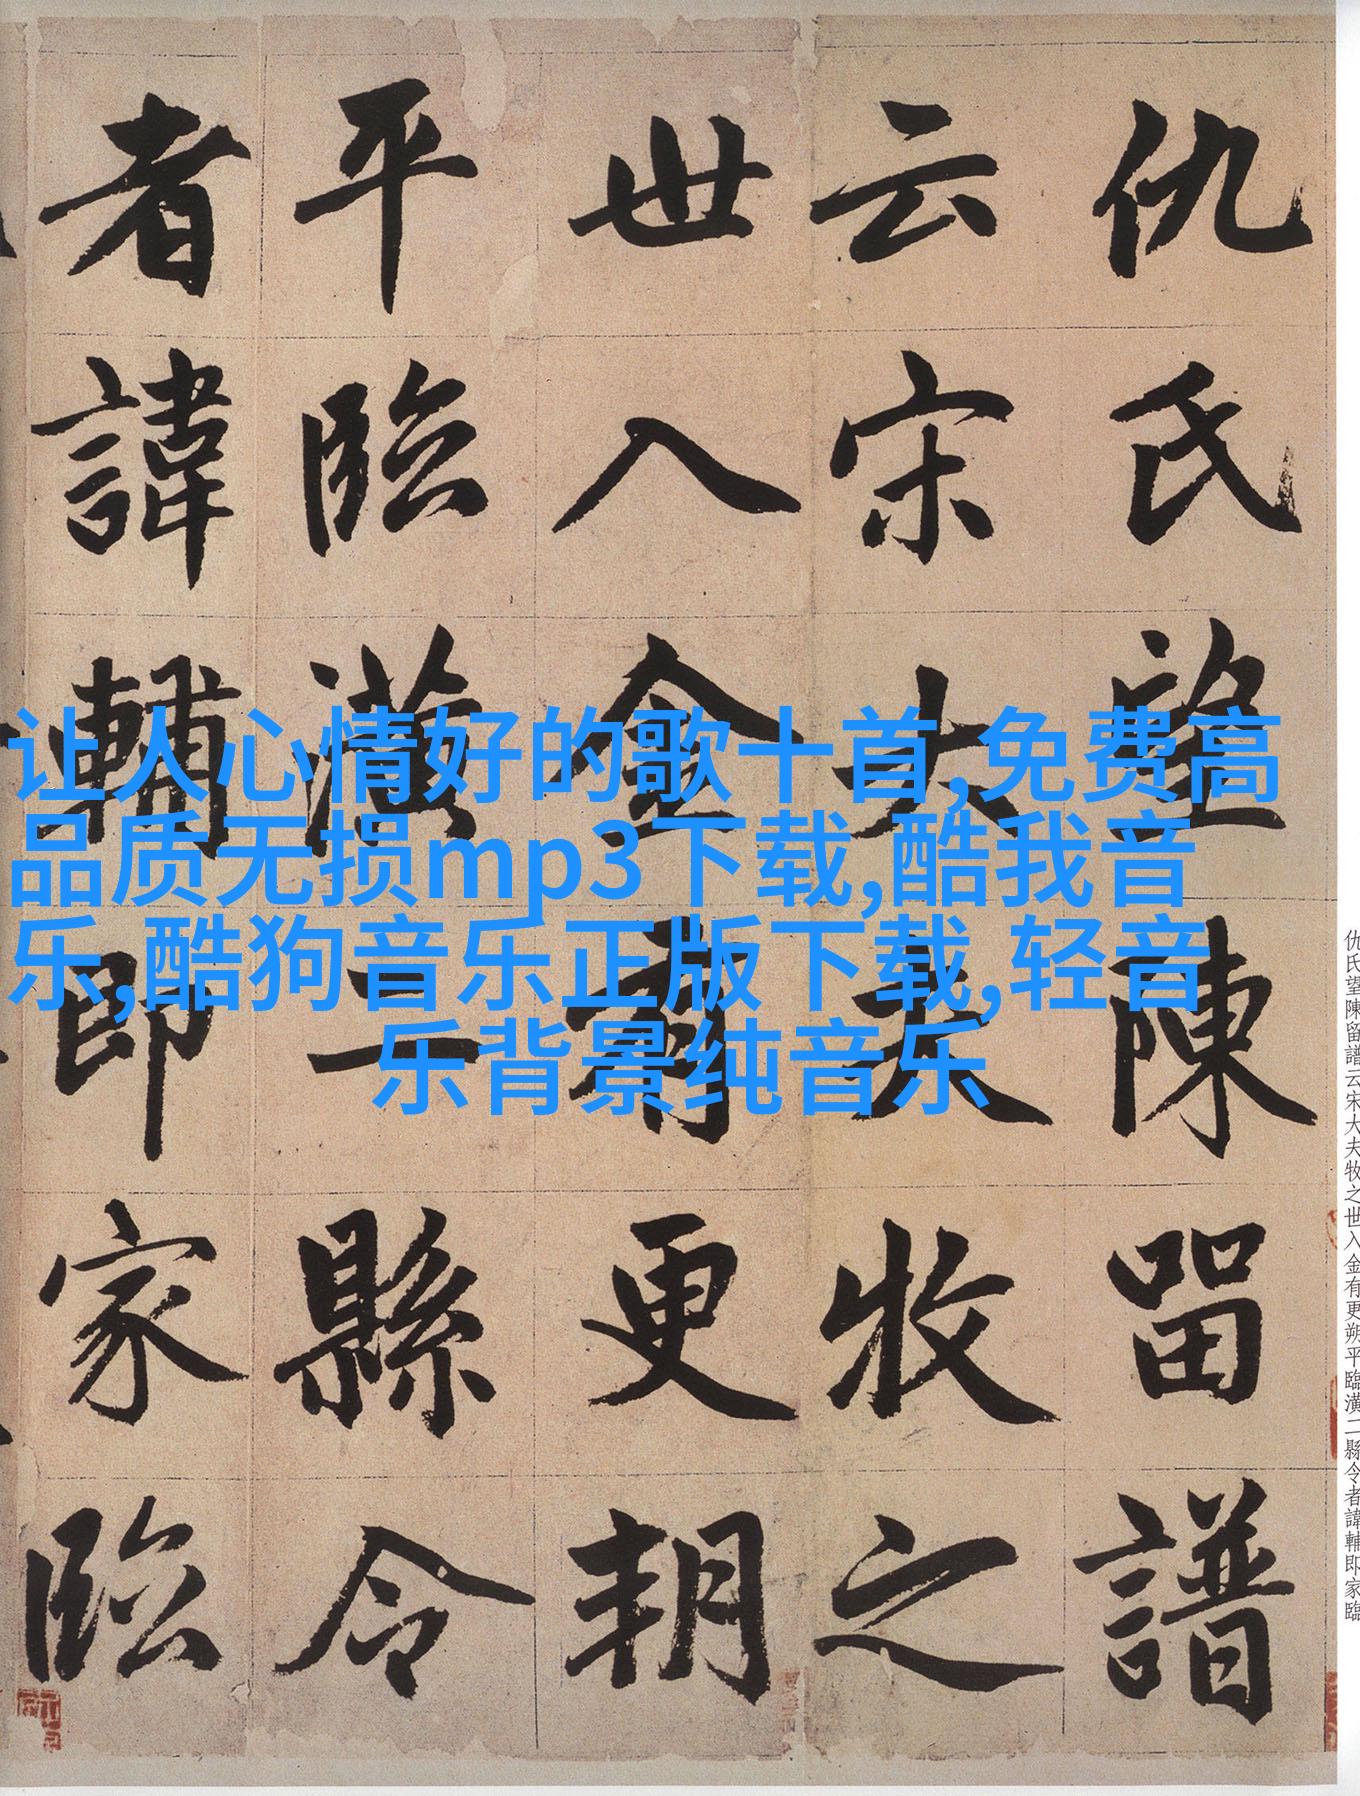 仇氏望陳留譜
云宋大夫牧之
世入金有更朔
平臨潢二縣令
者諱輔即家臨
让人心情好的歌十首,免费高
品质无损mp3下载,酷我音
乐,酷狗音乐正版下载,轻音
乐背景纯音乐
仇氏望陳留譜云宋大夫牧之世入金有更朔平臨潢二縣令者諱輔即家臨